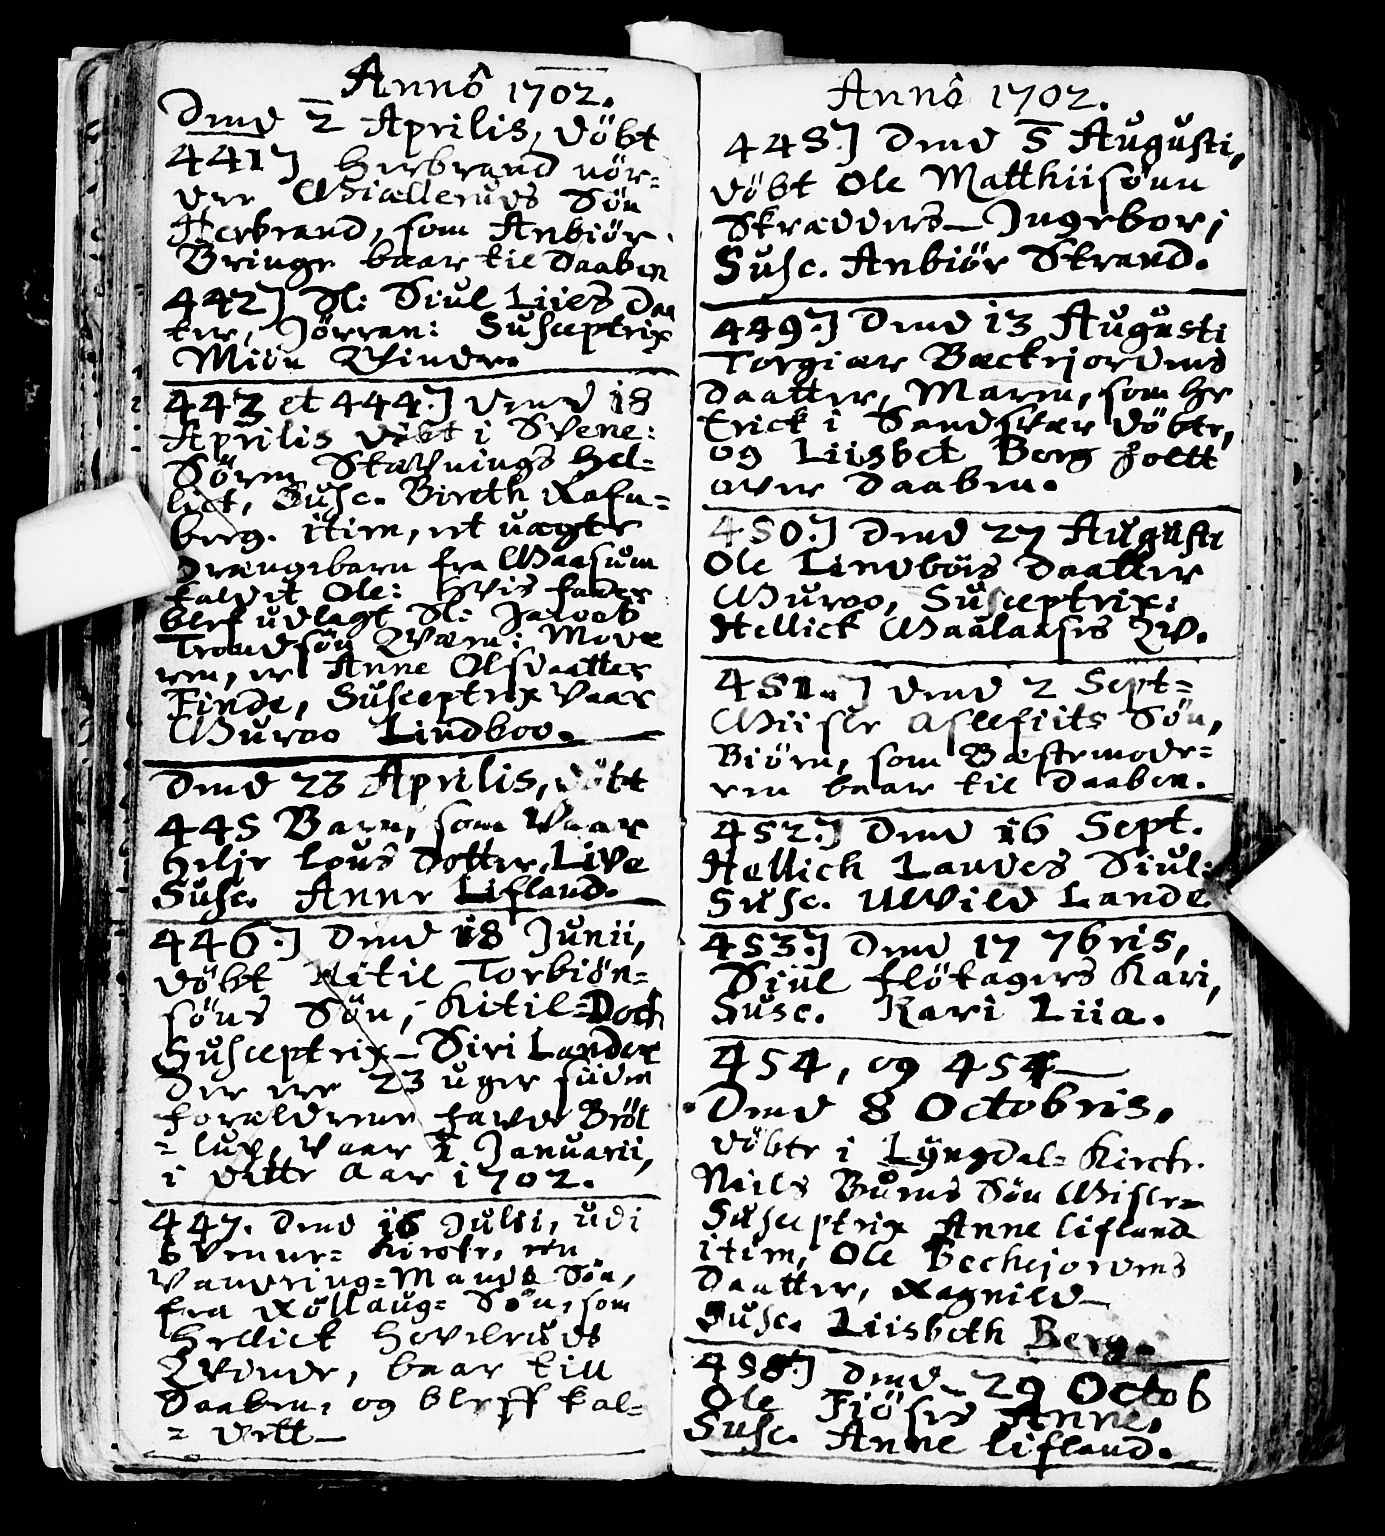 Annô 1702.
Dend 2 Aprilis, döbt
441] Herbrand nör-
dre Mialleruds Sön
Herbrand, som Anbiör
Bringe baar til Daaben
442] Sl: Siul Liies Daa
ter, Jörran: Susceptrix
Miön Qvinde.
443 et 444.] dend 18
Aprilis döbt i Svene:
Sören Stærnings Hel-
lict, Susc. Bireth Rafn-
berg. item, et uægte
Drængebarn fra Maasum
kaldit Ole: hvis fader
blef udlagt Sl: Jacob
Trondsön Qværn: Mode
ren, er Anne Olsdaatter
Finde, Susceptrix vaar
Guroo Lindboo.
Dend 23 Aprilis, döbt
445 Barn, som vaar
Helje Lous Dotter, Live
Susc. Anne Lifland.
446.] Dend 18 Junii,
döbt Kitil Torbiön-
söns Sön, Kitil=Doch
Susceptrix Siri Lander
Der ere 23 uger siden
forældrene havde Bröl
= lup, vaar 1 Januarii,
i dette Aar 1702.
447. Dend 16 Julii, udi
Svenne= Kircke, een
Vandring=Mands Sön,
fra Rollaug= Sön, som
Hellick Hoveleruds
Qvinde, baar till
Daaben, og bleff kal-
= dett
Annô 1702.
448.] Dend 5 Augusti,
döbt Ole Matthiisönn
Skrædders Ingebor;
Susc. Anbiör Strand.
449.] Dend 13 Augusti
Torgiær Bæckejordens
Daatter, Maren, som Hr
Erick i Sandsvær döbte,
og Liisbet Berg holtt
over Daaben.
450.] Dend 27 Augusti
Ole Lindböis Daatter
Guroo, Susceptrix:
Hellick Maalaases Qv.
451.] Dend 2 Sept=
Miisle Aslefiits Sön,
Biörn, som Bæstemode=
ren baar til Daaben.
452.] Dend 16 Sept.
Hellick Landes Siul:
Susc. Uvild Lande
453.] Dend 17 7bris,
Siul flötagers Kari,
Susc. Kari Liia.
454, og 454
Dend 8 Octobris,
döbte i Lyngdal= Kircke.
Niels Buens Sön Misle=
Susceptrix Anne lifland
item, Ole Beckejordens
Daatter, Ragnild
Susc. Liisbeth Berg.
458.] Dend 29 Octob
Ole Fiöses Anne,
Susc. Anne lifland.